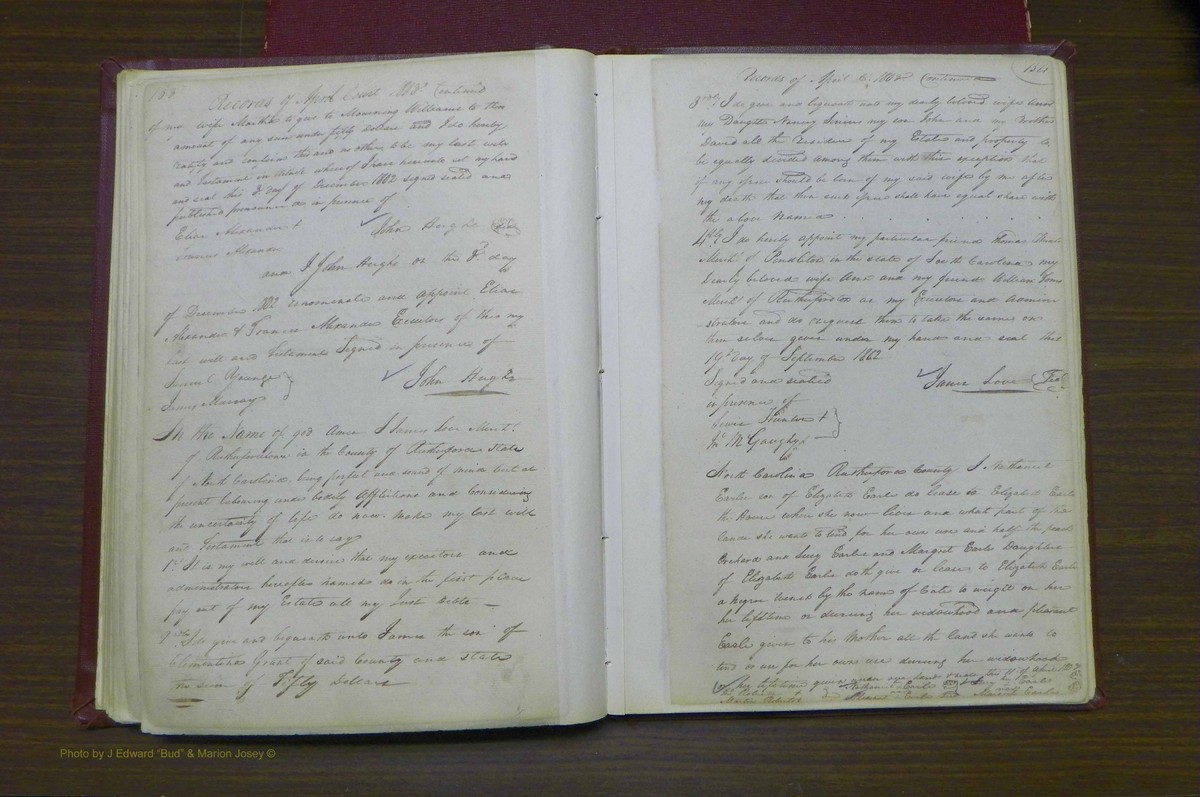 Records of April Court 1803 Continued
of my wife Martha to give to Mourning Williams to the
amount of any sum under fifty dollars and I do hereby
ratify and confirm this and no others to be my last will
and testament in witness whereof I have hereunto set my hand
and seal this 8 day of December 1802 signed sealed and
published pronounced in presence of
Elias Alexander +
John Hughs (Seal)
Francis Alexander
and I John Hughs on the 8 day
of December 1802 nominate and appoint Elias
Alexander & Francis Alexander Executors of this my
last will and testament Signed in presence of
Samuel Younge
John Hughs
James Murray
In the Name of god Amen I James Love Mercht
of Rutherfordton in the County of Rutherford State
of North Carolina being perfect and sound of mind but at
present laboring under bodily afflictions and considering
the uncertainty of life do now make my last will
and Testament that is to say
1st It is my will and desire that my executors and
administrators hereafter named do in the first place
pay out of my Estate all my Just debts —
2ndly I do give and bequeath unto James the son of
Clementina Grant of said County and state
the sum of Fifty Dollars
Records of April Continued
3rdly I do give and bequeath unto my dearly beloved wife Ann
my Daughter my son John and my Brother
David all the Residue of my Estate and property to
be equally divided among them with this exception that
if any issue should be born of my said wife by me after
my death that then such issue shall have equal share with
the above named
4thly I do hereby appoint my particular friend Thomas
Mercht of Pendleton in the state of South Carolina my
dearly beloved wife Ann and my friend William
Mercht of Rutherfordton as my Executors and Admini
strators and do request them to take the same on
them selves given under my hand and seal this
19th day of September 1802
Signed and sealed
James Love (Seal)
in presence of
Hunter +
Jno McGaughy
North Carolina Rutherford County I Nathaniel
Earle son of Elizabeth Earle do lease to Elizabeth Earle
the House where she now lives and what part of the
land she wants to tend for her own use and half the peach
Orchard and Lucy Earle and Margret Earle Daughters
of Elizabeth Earle doth give or lease to Elizabeth Earle
a negro wench by the name of Cate to wright on her
her lifetime or during her widowhood and pleasant
Earle gives to her Mother all the land she wants to
tend or use for her own use during her widowhood
or her lifetime given under our hands
Photo by J Edward "Bud" & Marion Josey ©